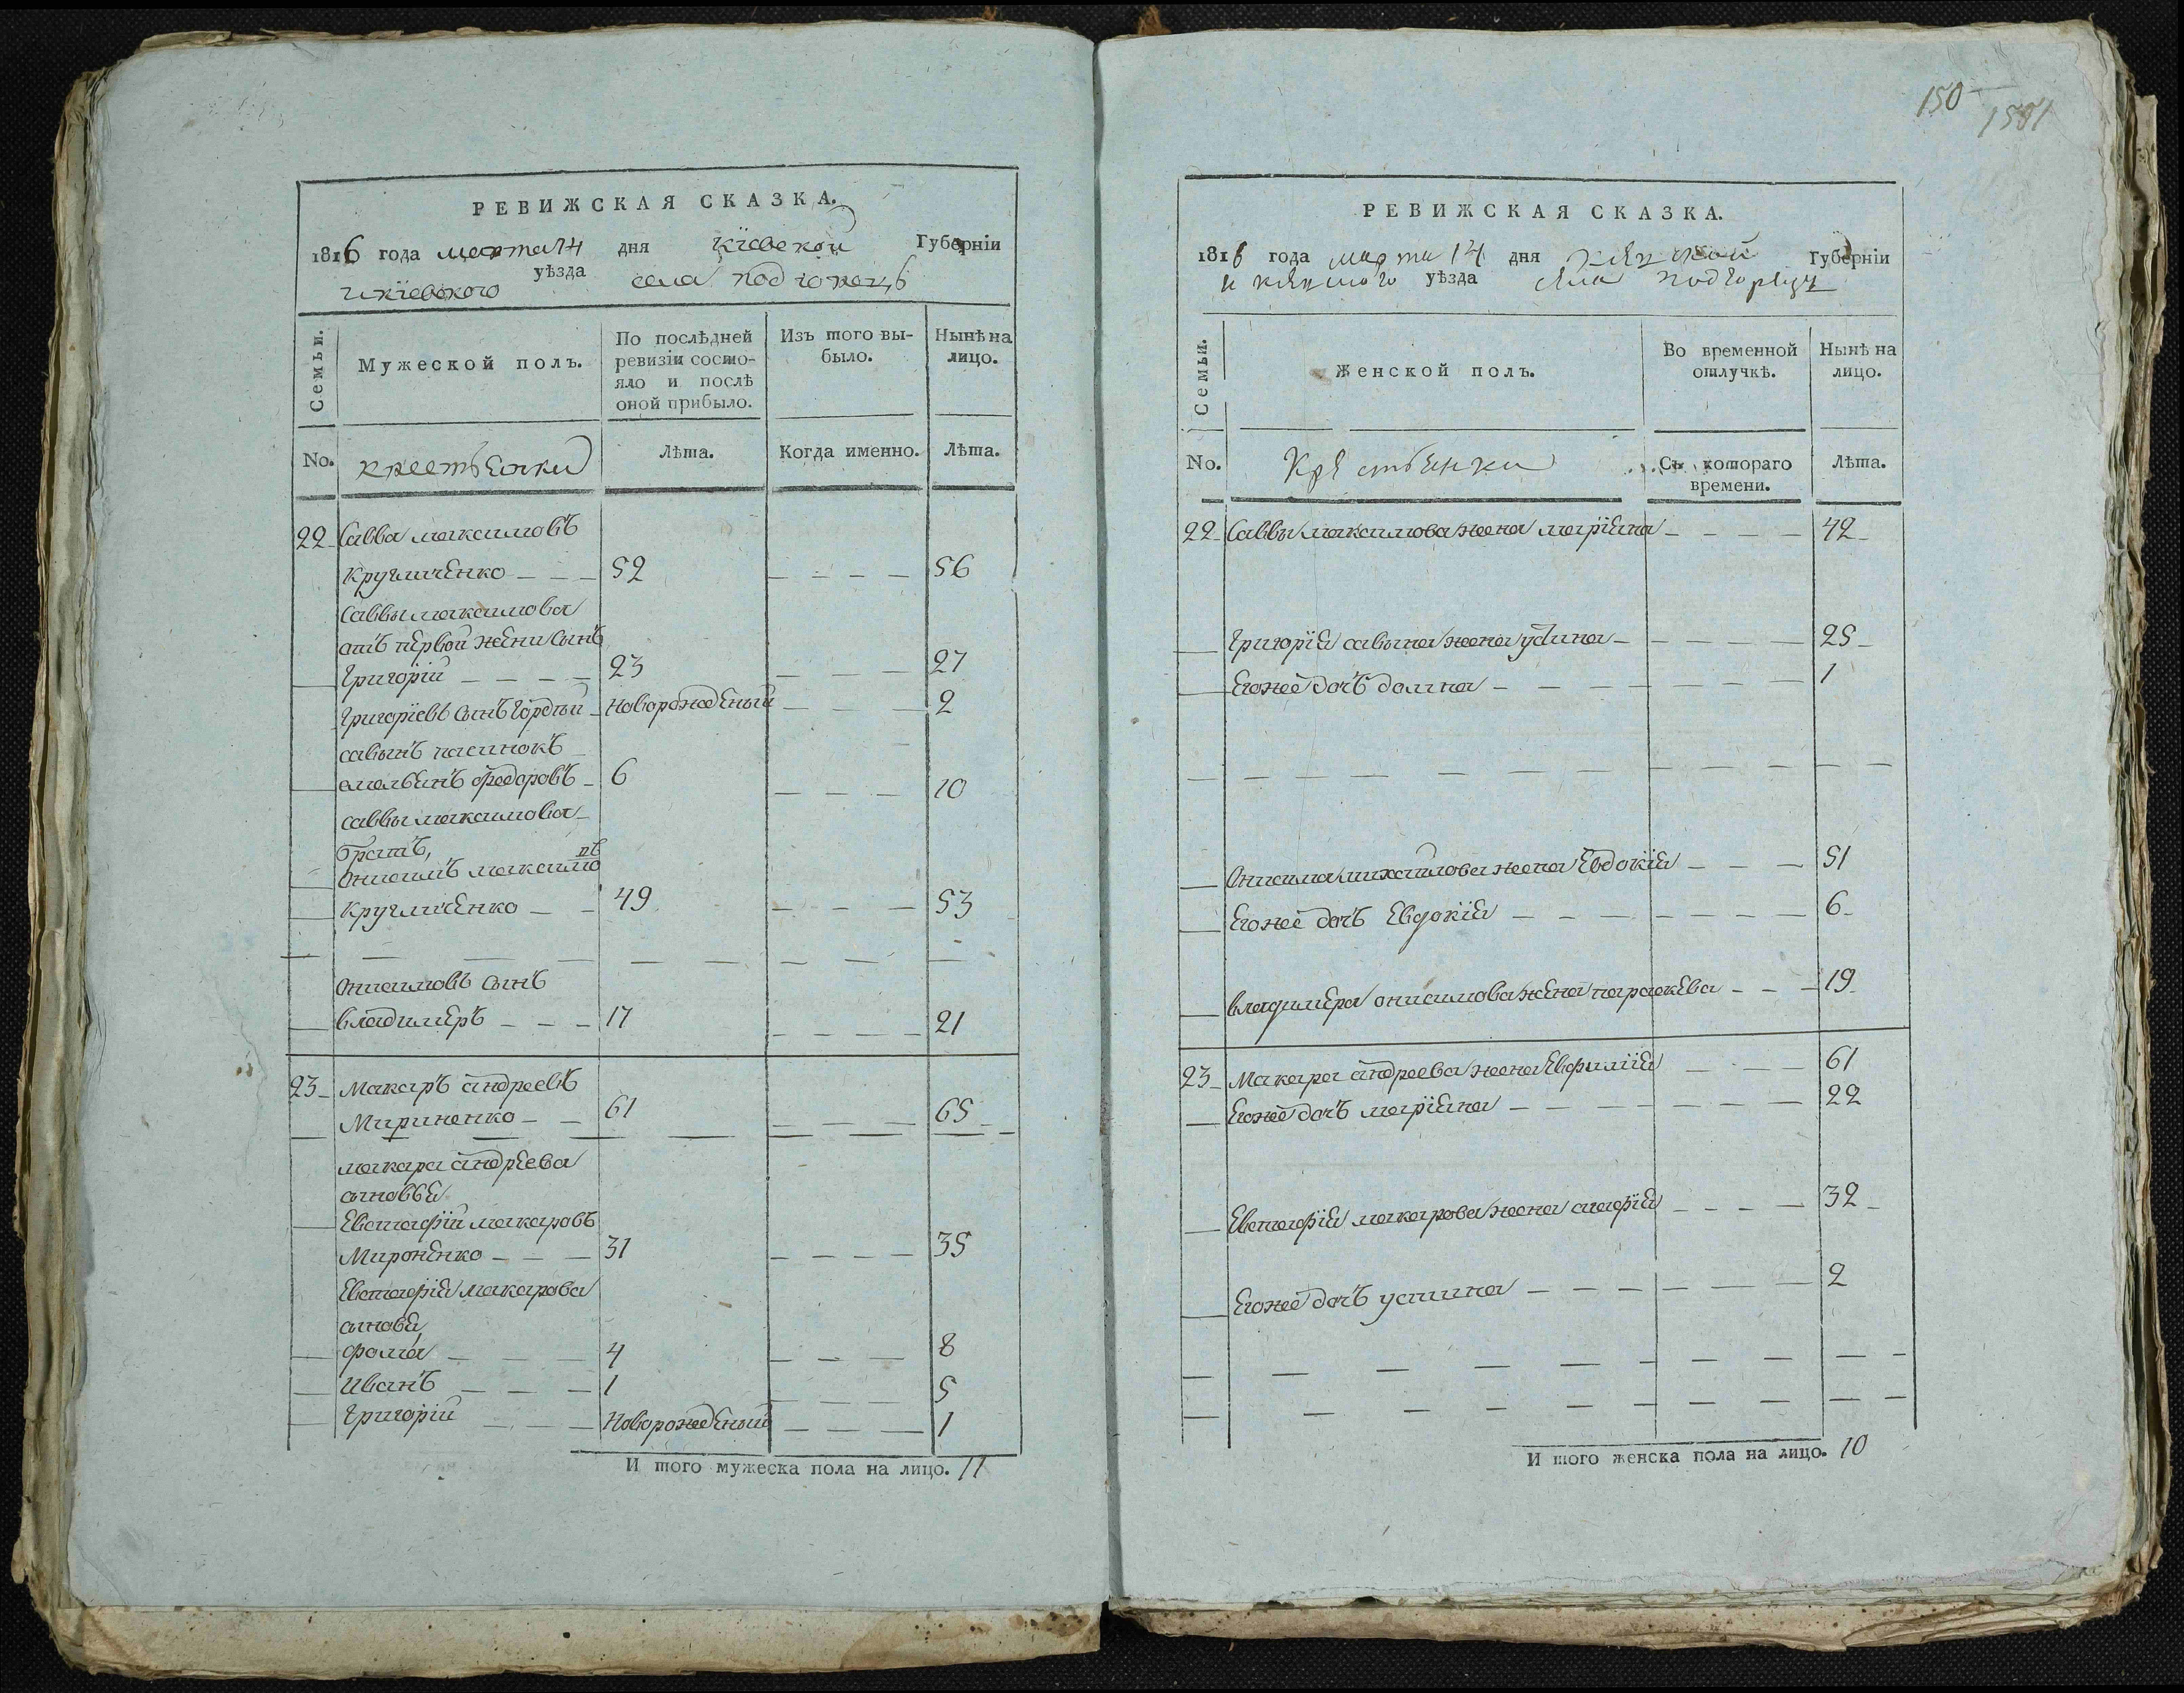 150
1501
РЕВИЖСКАЯ СКАЗКА.
1816 года марта 14 дня Кіевской Губерніи
и кіевского уѣзда села подгорецъ
Семьи.
Мужеской полъ.
По послѣдней ревизіи состояло и послѣ оной прибыло.
Изъ того выбыло.
Нынѣ на лицо.
No.
крестьяне
Лѣта.
Когда именно.
Лѣта.
22 Савва максимовъ
Кругличенко 52 56
Саввы максимова
отъ первой жени сынъ
Григорій 23 27
Григорієвъ сынъ Гордѣй новорожденый 2
савынъ пасинокъ
емельянъ федоровъ 6 10
саввы максимова
братъ,
Онисимъ максимовъ
Кругличенко 49 53
Онисимовъ сынъ
владимеръ 17 21
23 Макаръ андреевъ
Мироненко 61 65
макара андреева
сыновья
Евстафій макаровъ
Мироненко 31 35
Евстафія макарова
сыновя,
фома 4 8
Иванъ 1 5
Григорій Новорожденый 1
И того мужеска пола на лицо. 11
РЕВИЖСКАЯ СКАЗКА.
1816 года марта 14 дня Губерніи
и уѣзда села подгорецъ
Семьи.
Женской полъ.
Во временной отлучкѣ.
Нынѣ на лицо.
No.
Крестьянки
Съ котораго времени.
Лѣта.
22 Саввы максимова жена маріяна 42
Григорія савына жена устина 25
Егоже дочъ домна 1
Онисима михайлова жена Евдокія 51
Егоже дочъ Евдокія 6
владимера онисимова жена параскева 19
23 Макара андреева жена Евфимія 61
Егоже дочъ маріяна 22
Евстафія макарова жена агафія 32
Егоже дочъ устина 2
И того женска пола на лицо. 10